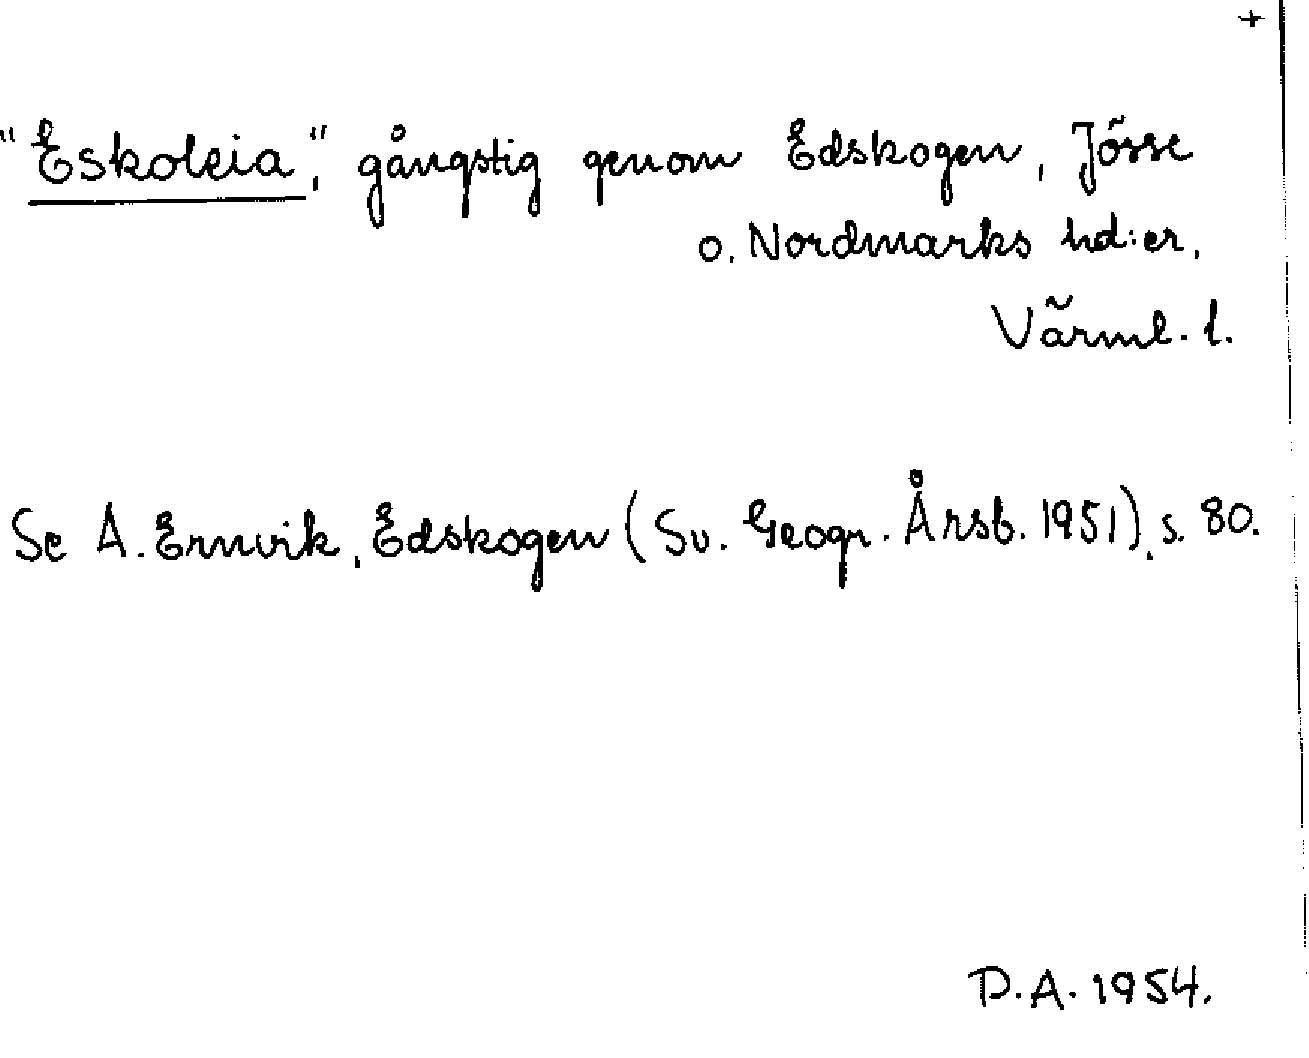 +
"Eskoleia", gångstig genom Edskogen, Jösse
o. Nordmarks hd:er,
Värml. l.
Se A. Ernvik, Edskogen (Sv. Geogr. Årsb. 1951), s. 80.
D.A. 1954.